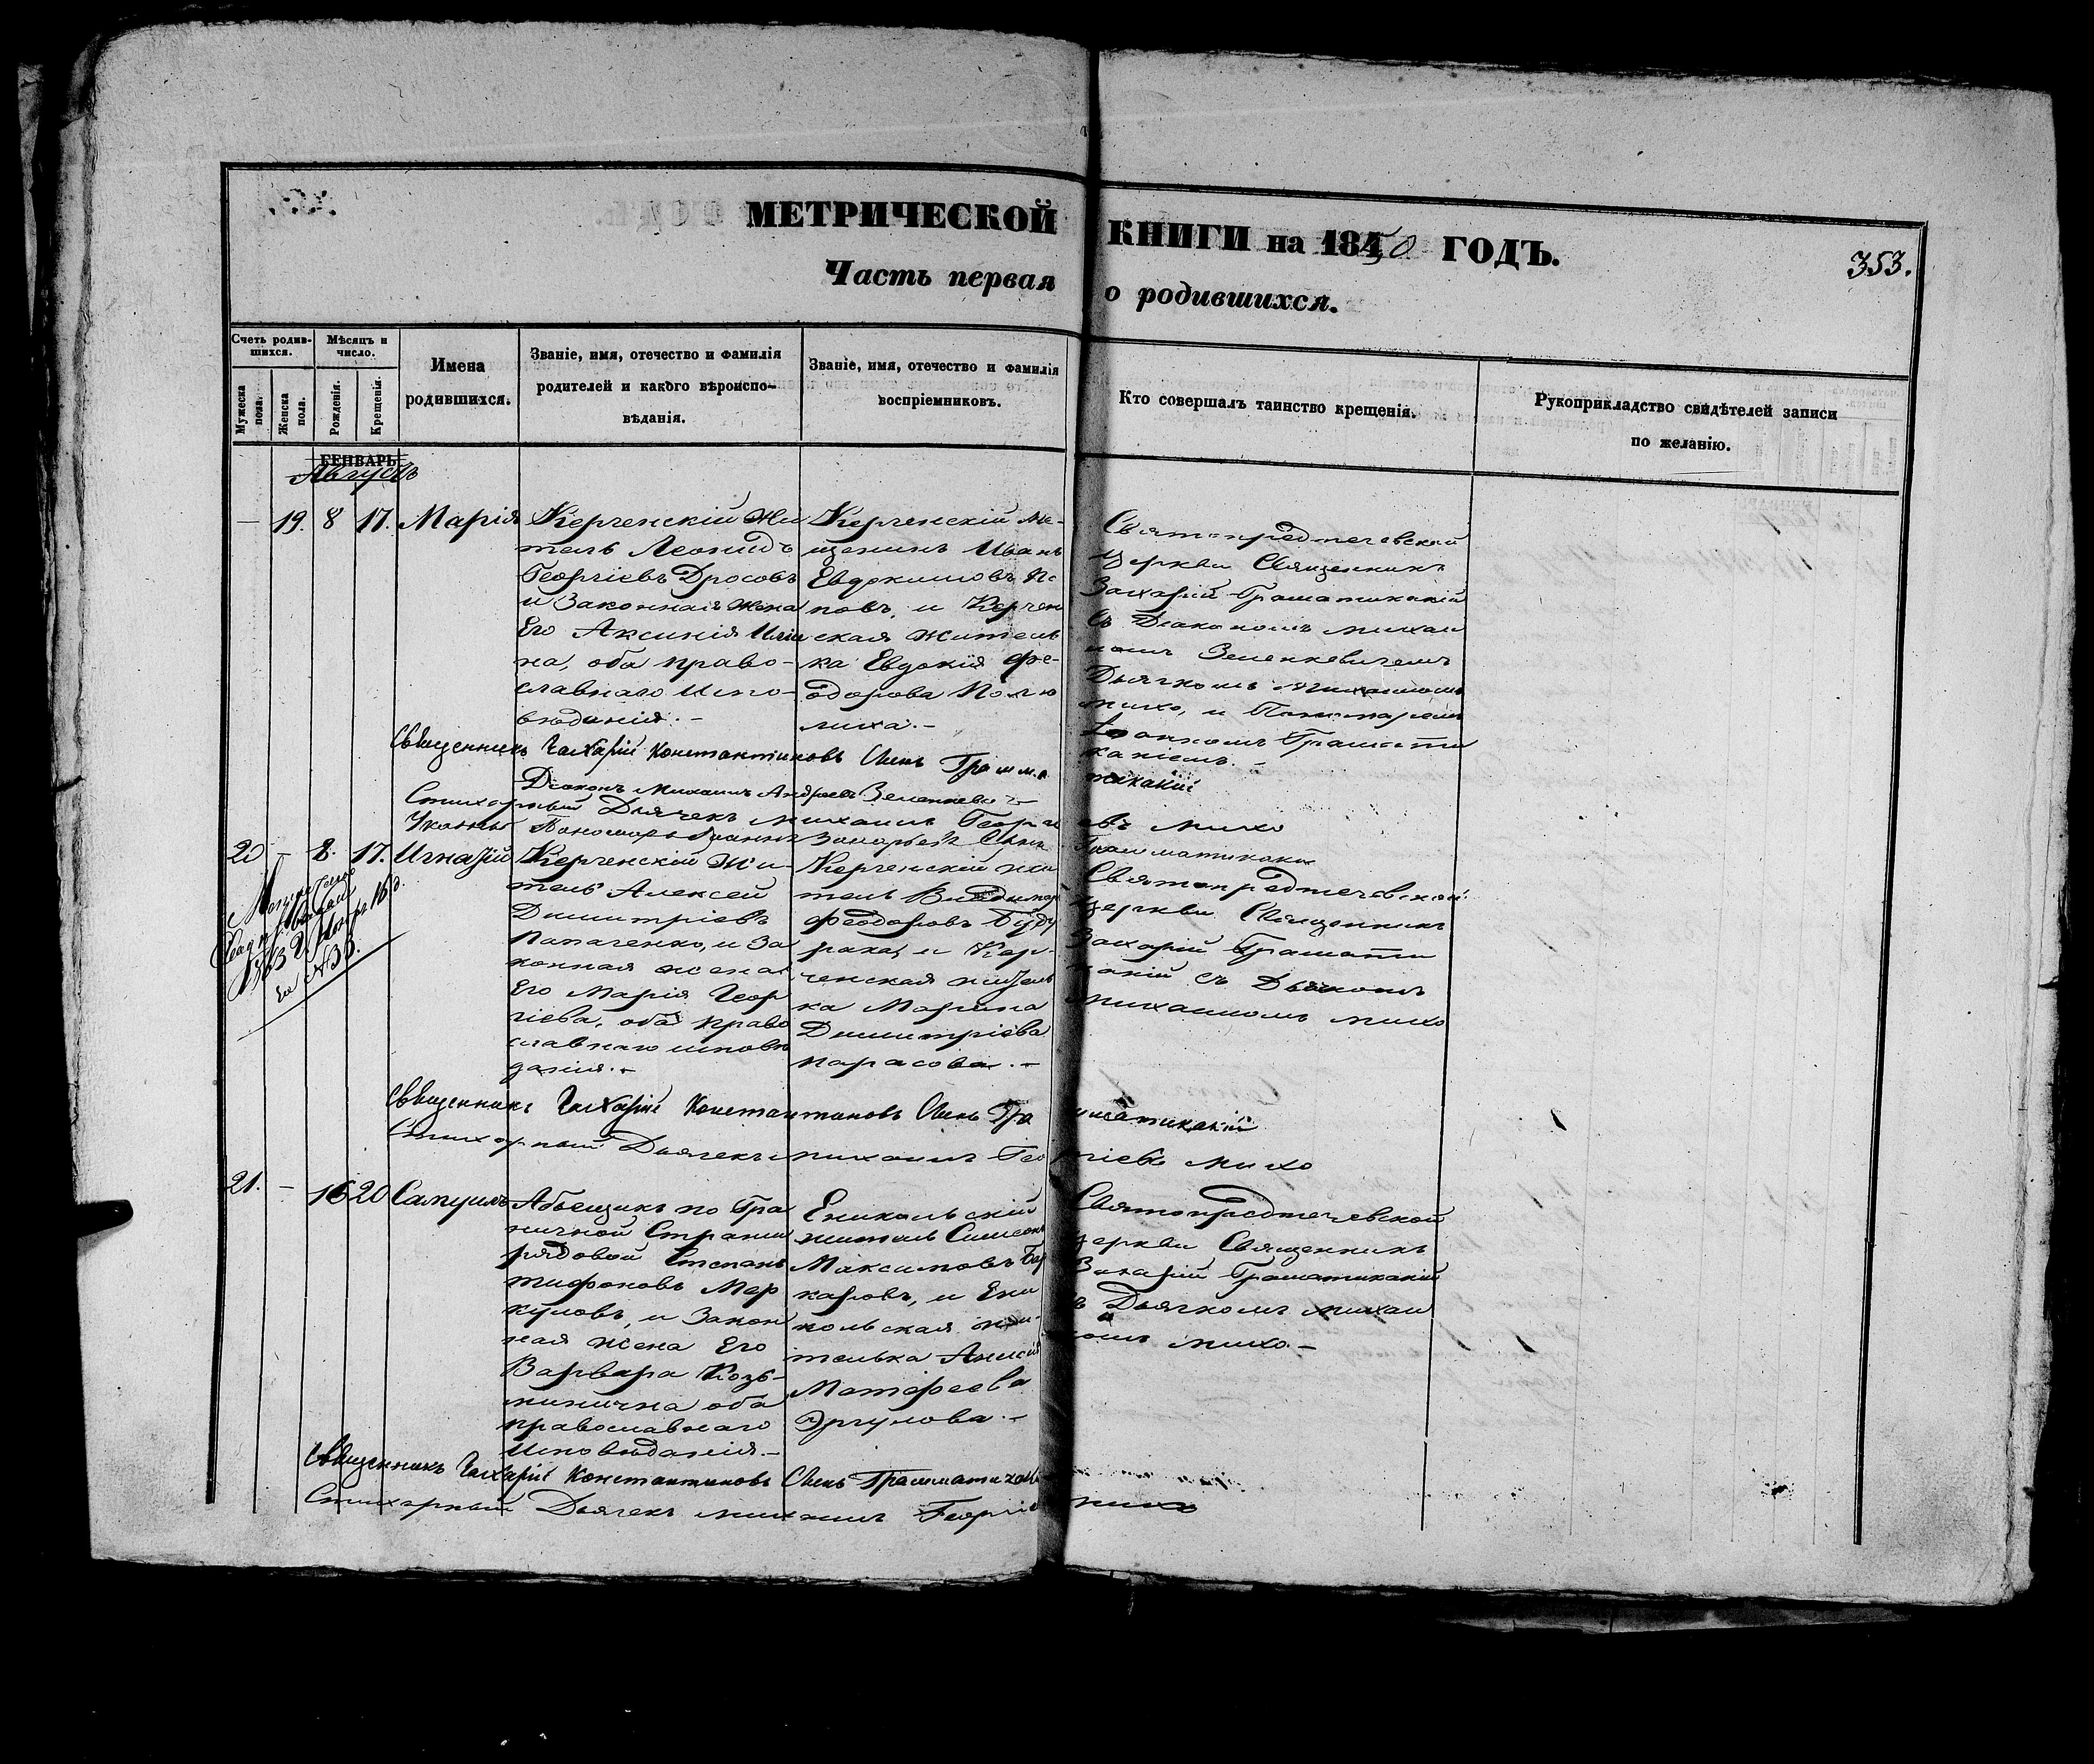 МЕТРИЧЕСКОЙ КНИГИ на 1850 ГОДЪ.
353.
Часть первая о родившихся.
Счетъ родив-
шихся.
Мужеска
пола.
Женска
пола.
Мѣсяцъ и
число.
Рожденія.
Крещенія.
Имена
родившихся.
Званіе, имя, отечество и фамилія
родителей и какого вѣроиспо-
вѣданія.
Званіе, имя, отечество и фамилія
воспріемниковъ.
Кто совершалъ таинство крещенія.
Рукоприкладство свидѣтелей записи
по желанію.
ГЕНВАРЬ
Августъ
— 19. 8 17. Марія
Керченскій жи
тель Леонидъ
Георгіевъ Дросовъ
и Законная жена
Его Аксинія Иліи
на, оба право-
славнаго испо-
вѣданія.-
Керченскій ме-
щенинъ Иванъ
Евдокимовъ По
повъ, и Керчен
ская житель
ка Евдокія Фе-
одорова
лиха.-
Святопредтечевской
Церкви Священникъ
Захарій Граматикакій
Съ Діакономъ михаи
ломъ Зеленкевичемъ
Дьячкомъ михаиломъ
михо, и Понамаремъ
Іоанномъ Грамати
какіемъ.-
Священникъ Захарій Константиновъ Сынъ Грамма тикакій
Діаконъ Михаилъ Андреевъ Зеленкевичъ
Стихарный Дьячекъ михаилъ Георгіевъ михо
Понамарь Іоаннъ Захарьевъ Сынъ Грамматикаки
20 — 8. 17. Игнатій
Керченскій жи-
тель Алексей
Димитріевъ
Папаченко, и За
конная жена
Его Марія Геор
гіева, оба право
славнаго исповѣ
данія.-
Керченскій жи
тель
Феодоровъ
и Кер-
ченская житель
ка Марина
Димитріева
Карасова.-
Святопредтечевской
церкви Священникъ
Захарій Грамати
какій съ Дьячкомъ
михаиломъ михо
Священникъ Захарій Константиновъ Сынъ Грамматикакій
Стихарный Дьячекъ михаилъ Георгіевъ михо
21. — 16 20 Самуилъ
Абьещикъ по Гра
ничной Стражи
рядовой Степанъ
Тифоновъ Мер
куловъ, и Закон
ная жена Его
Варвара Козь-
минична оба
православнаго
Исповѣданія.-
Еникольскій
житель Симеонъ
Максимовъ
и Ени
кольская жи-
телька
Матфеева
Эргунова.-
Святопредтечевской
церкви Священникъ
Захарій Граматикакій
съ Дьячкомъ михаи
ломъ михо.-
Священникъ Захарій Константиновъ Сынъ Грамматикакій
Стихарный Дьячекъ михаилъ Георгіевъ михо